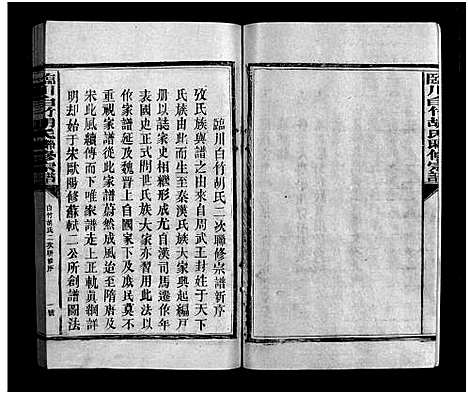 臨川白竹胡氏聯修宗譜
臨川白竹胡氏二次聯修宗譜新序
攷氏族與譜之由來自周武王封姓于天下
氏族由此而生至秦漢氏族大家興起編戶
册以誌家史相繼形成尤自漢司馬遷作年
表國史正式問世氏族大家亦習用此法以
作家譜延及魏晋上自國家下及庶民莫不
重視家譜從此家譜蔚然成風迨至隋唐及
宋此風續傳而下唯家譜走上正軌真綱詳
明却始于宋歐陽修蘇軾二公所創譜圖法
臨川白竹胡氏聯修宗譜
白竹胡氏二次聯修序
一號